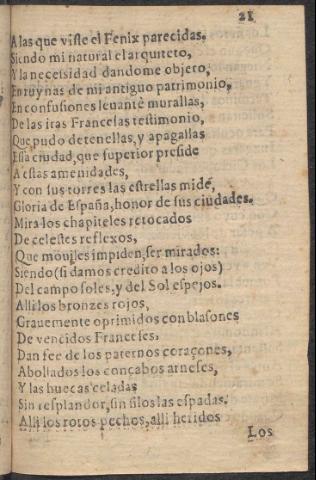 21
A las que viste el Fenix parecidas.
Siendo mi natural el arquiteto,
Y la necesidad dandome objeto,
En ruynas de mi antiguo patrimonio,
En confusiones leuantè murallas,
De las iras Francesas testimonio,
Que pudo detenellas, y apagallas
Essa ciudad, que superior preside
A estas amenidades,
Y con sus torres las estrellas mide,
Gloria de España, honor de sus ciudades.
Mira los chapiteles retocados
De celestes reflexos,
Que mouiles impiden ser mirados:
Siendo (si damos credito a los ojos)
Del campo soles, y del Sol espejos.
Alli los bronzes rojos,
Grauemente oprimidos con blasones
De vencidos Franceses,
Dan fee de los paternos coraçones,
Abollados los conçabos arneses,
Y las huecas celadas
Sin resplandor, sin filos las espadas.
Alli los rotos pechos, alli heridos
Los